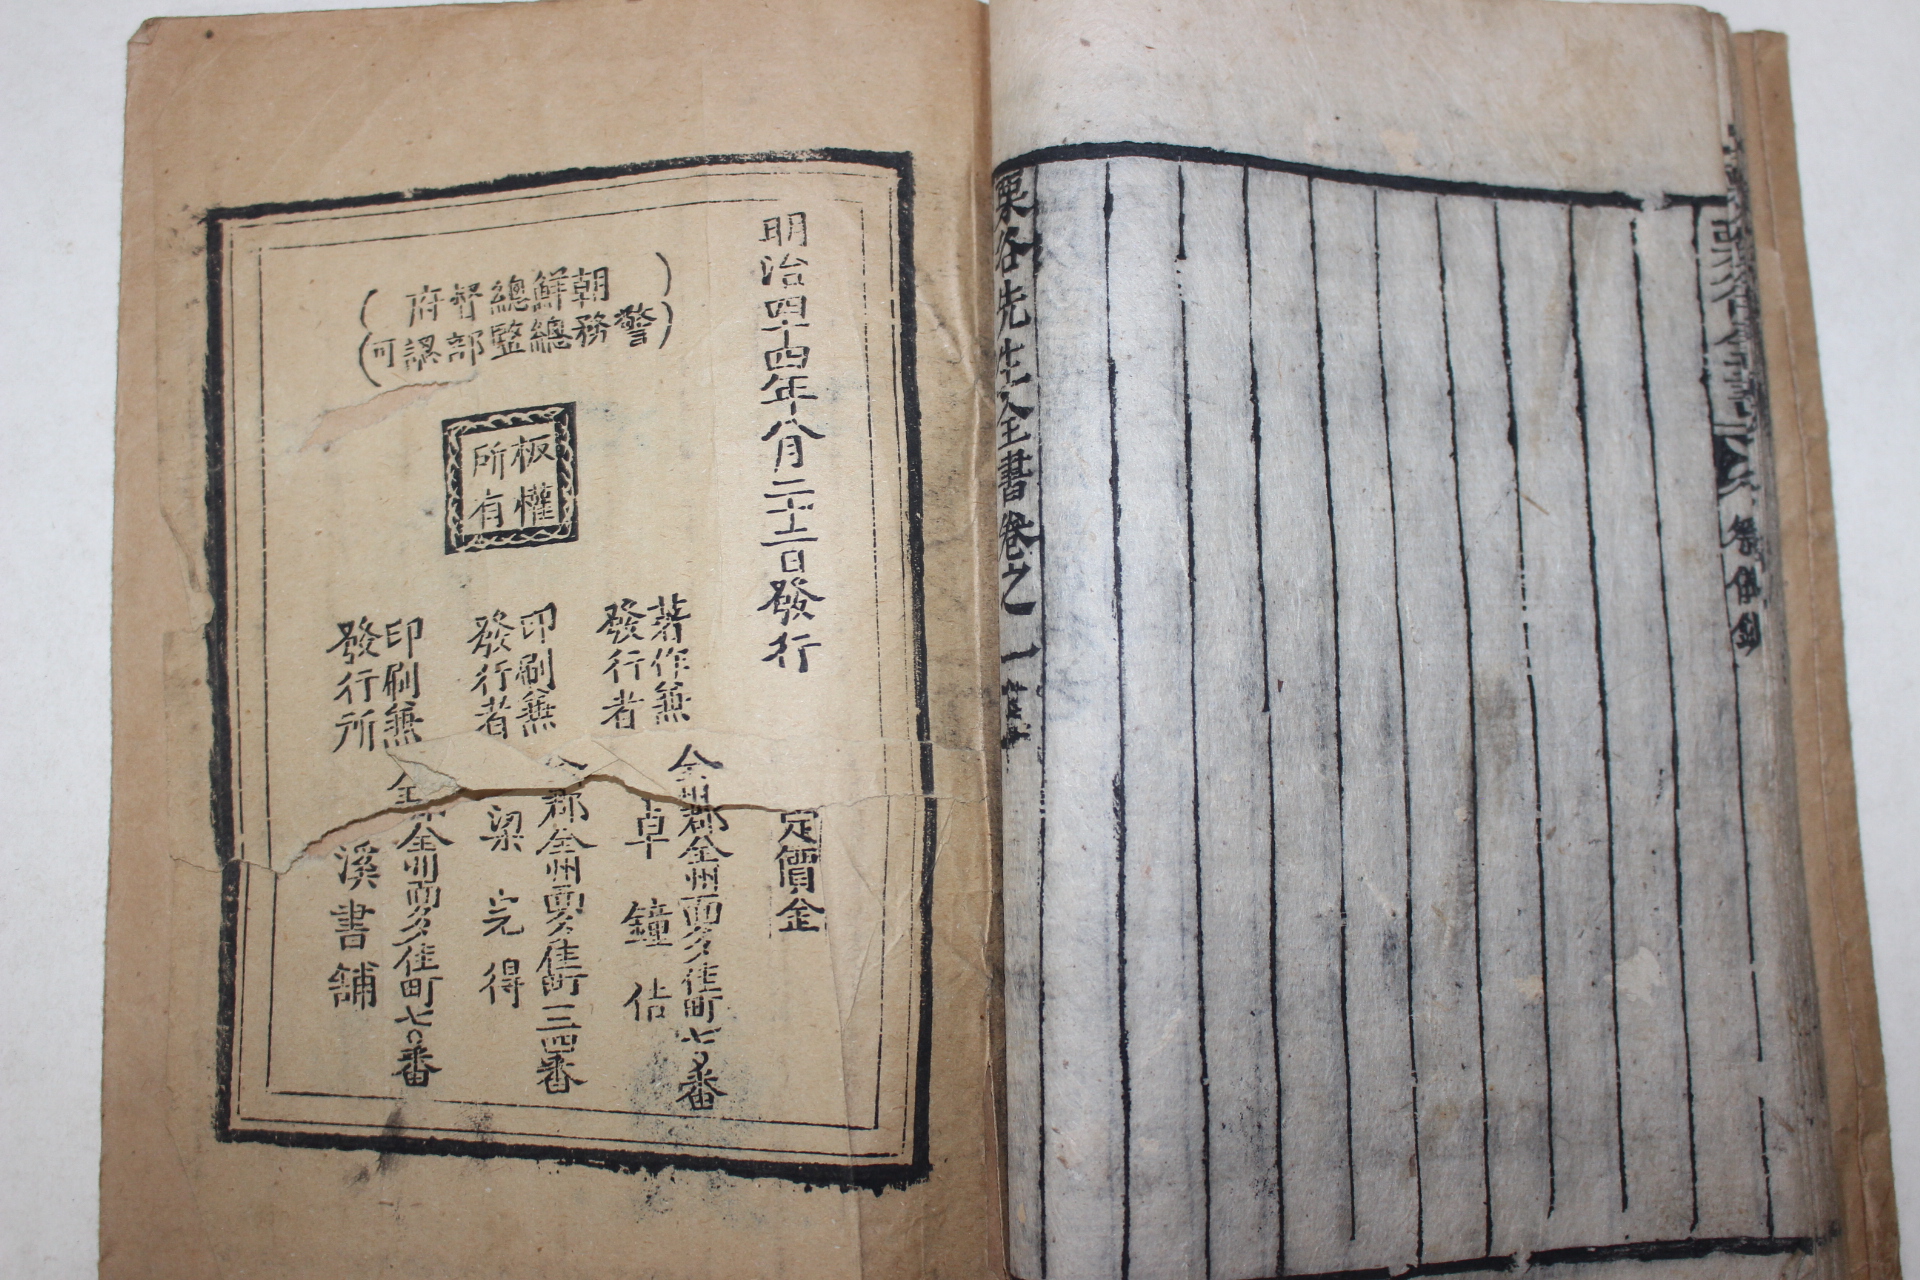 栗谷先生全書卷之一
祭儀鈔
明治四十四年八月二十二日發行
定價金
朝鮮總督府
警務總監部認可
板權
所有
著作兼
發行者
全州郡全州面多佳町七〇番
卓鐘佶
印刷兼
發行者
全郡全州面多佳町一三四番
梁完得
印刷兼
發行所
全州面多佳町七〇番
溪書舖